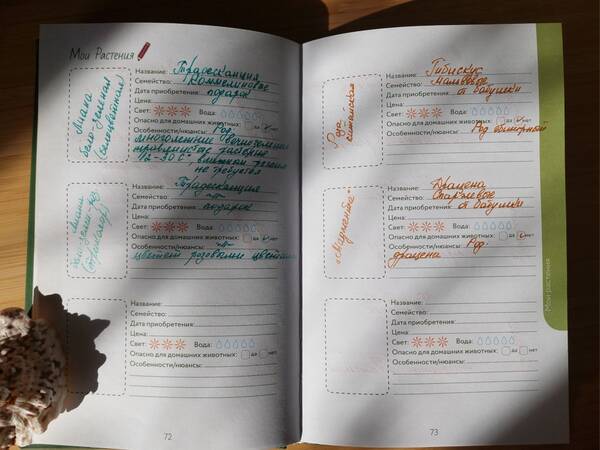 Мои Растения
Лиана
бело-зелёная
Название: Традесканция
Семейство: Коммелиновые
Дата приобретения: подарок
Цена:
Свет: Вода:
Опасно для домашних животных: да нет
Особенности/нюансы: Род
многолетние вечнозелёные
травянистые растения
12-30 C° влажный режим
не требуется
Название: Традесканция
Семейство:
Дата приобретения: подарок
Цена:
Свет: Вода:
Опасно для домашних животных: да нет
Особенности/нюансы:
цветёт розовыми цветами
Название:
Семейство:
Дата приобретения:
Цена:
Свет: Вода:
Опасно для домашних животных: да нет
Особенности/нюансы:
72
Роза
китайская
Название: Гибискус
Семейство: Мальвовые
Дата приобретения: от бабушки
Цена:
Свет: Вода:
Опасно для домашних животных: да нет
Особенности/нюансы: Род обширный
"Маргината"
Название: Драцена
Семейство: Спаржевые
Дата приобретения: от бабушки
Цена:
Свет: Вода:
Опасно для домашних животных: да нет
Особенности/нюансы: Род
драцены
Название:
Семейство:
Дата приобретения:
Цена:
Свет: Вода:
Опасно для домашних животных: да нет
Особенности/нюансы:
73
Мои растения